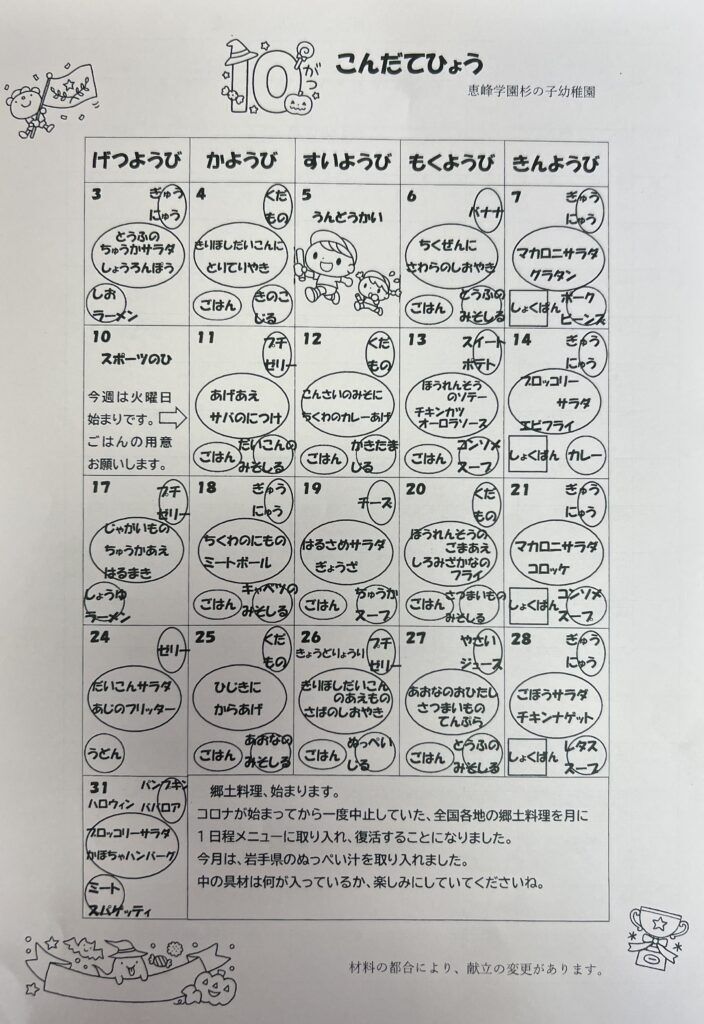 10がつ こんだてひょう
恵峰学園杉の子幼稚園
げつようび かようび すいようび もくようび きんようび
3 ぎゅう
にゅう
とうふの
ちゅうかサラダ
しょうろんぽう
しお
ラーメン
4 くだ
もの
きりぼしだいこんに
とりてりやき
ごはん
きのこ
じる
5
うんどうかい
6 バナナ
ちくぜんに
さわらのしおやき
ごはん
とうふの
みそしる
7 ぎゅう
にゅう
マカロニサラダ
グラタン
しょくぱん
ポーク
ビーンズ
10
スポーツのひ
今週は火曜日
始まりです。
ごはんの用意
お願いします。
11 プチ
ゼリー
あげあえ
サバのにつけ
ごはん
だいこんの
みそしる
12 くだ
もの
こんさいのみそに
ちくわのカレーあげ
ごはん
かきたま
じる
13 スイート
ポテト
ほうれんそう
のソテー
チキンカツ
オーロラソース
ごはん
コンソメ
スープ
14 ぎゅう
にゅう
ブロッコリー
サラダ
エビフライ
しょくぱん
カレー
17 プチ
ゼリー
じゃがいもの
ちゅうかあえ
はるまき
しょうゆ
ラーメン
18 ぎゅう
にゅう
ちくわのにもの
ミートボール
ごはん
キャベツの
みそしる
19 チーズ
はるさめサラダ
ぎょうざ
ごはん
ちゅうか
スープ
20 くだ
もの
ほうれんそうの
ごまあえ
しろみざかなの
フライ
ごはん
さつまいもの
みそしる
21 ぎゅう
にゅう
マカロニサラダ
コロッケ
しょくぱん
コンソメ
スープ
24 ゼリー
だいこんサラダ
あじのフリッター
うどん
25 くだ
もの
ひじきに
からあげ
ごはん
あおなの
みそしる
26 プチ
きょうどりょうり ゼリー
きりぼしだいこん
のあえもの
さばのしおやき
ごはん
ぬっぺい
じる
27 やさい
ジュース
あおなのおひたし
さつまいもの
てんぷら
ごはん
とうふの
みそしる
28 ぎゅう
にゅう
ごぼうサラダ
チキンナゲット
しょくぱん
レタス
スープ
31 パンプキン
ハロウィン ババロア
ブロッコリーサラダ
かぼちゃハンバーグ
ミート
スパゲッティ
郷土料理、始まります。
コロナが始まってから一度中止していた、全国各地の郷土料理を月に
1日程メニューに取り入れ、復活することになりました。
今月は、岩手県のぬっぺい汁を取り入れました。
中の具材は何が入っているか、楽しみにしていてくださいね。
材料の都合により、献立の変更があります。